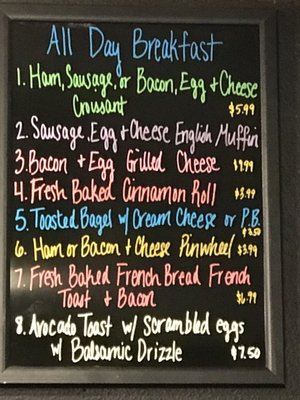 All Day Breakfast
1. Ham, Sausage, or Bacon, Egg + Cheese
Croissant $5.99
2. Sausage, Egg + Cheese English Muffin
3. Bacon + Egg Grilled Cheese
4. Fresh Baked Cinnamon Roll $3.99
5. Toasted Bagel w/ Cream Cheese or P.B.
$3.50
6. Ham or Bacon + Cheese Pinwheel $3.99
7. Fresh Baked French Bread French
Toast + Bacon $6.99
8. Avocado Toast w/ scrambled eggs
w/ Balsamic Drizzle $7.50